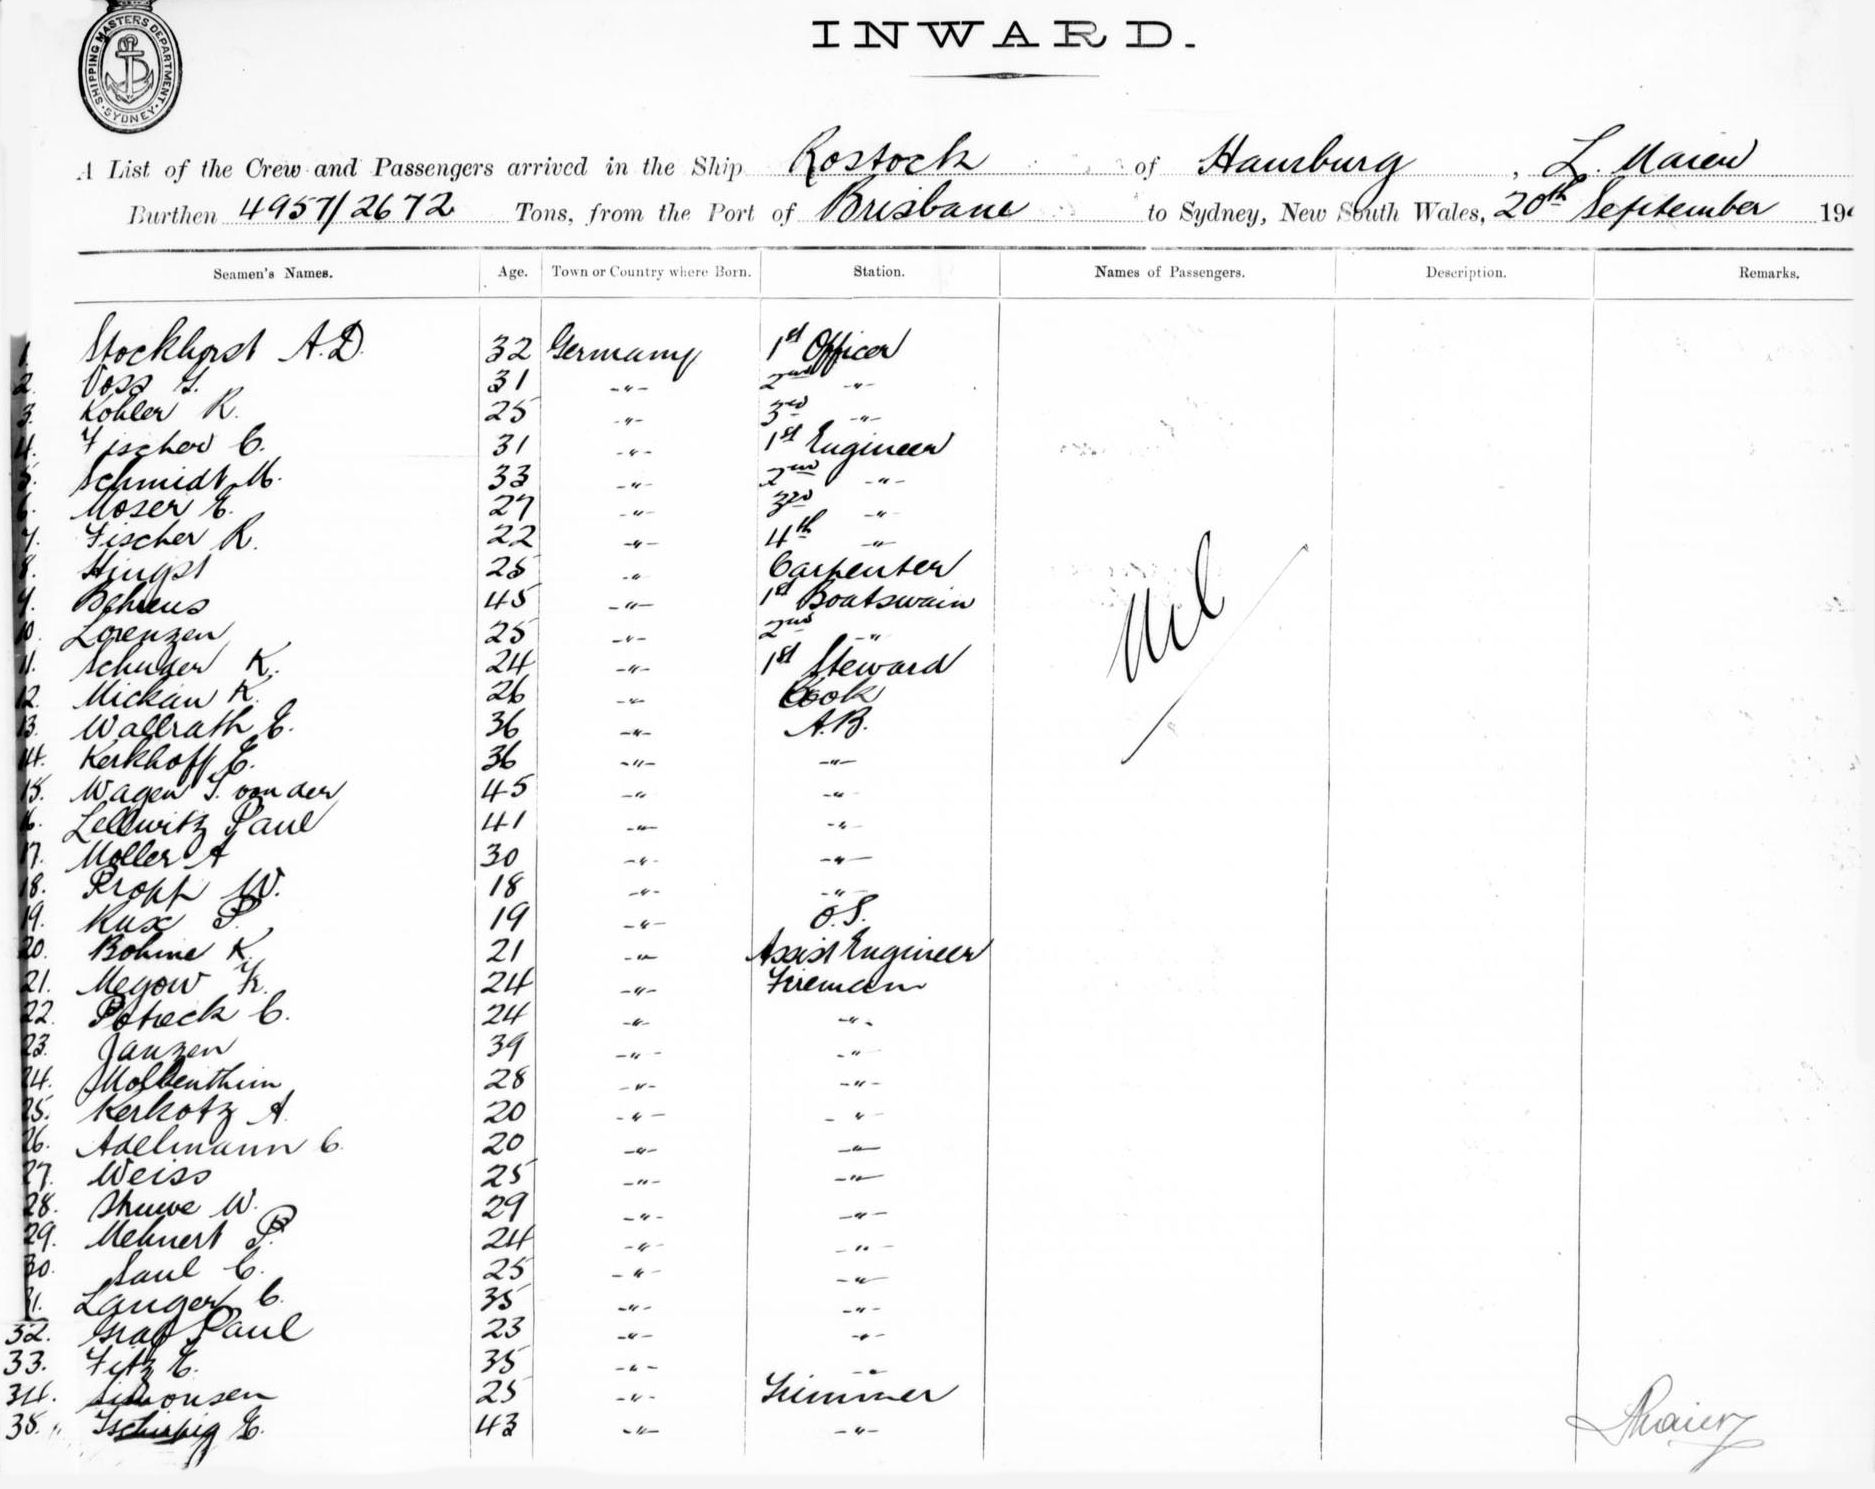 SHIPPING MASTERS DEPARTMENT
SYDNEY
INWARD.
A List of the Crew and Passengers arrived in the Ship Rostock of Hamburg, L. Maier
Burthen 4957/2672 Tons, from the Port of Brisbane to Sydney, New South Wales, 20th September 19
Seamen's Names. Age. Town or Country where Born. Station. Names of Passengers. Description. Remarks.
1. Stockhorst A.D. 32 Germany 1st Officer
2. Voss 31 -"- 2nd -"-
3. Kohler R. 25 -"- 3rd -"-
4. Fischer C. 31 -"- 1st Engineer
5. Schmidt M. 33 -"- 2nd -"-
6. Moser E. 27 -"- 3rd -"-
7. Fischer R. 22 -"- 4th -"-
8. Hingst 25 -"- Carpenter
9. Behrens 45 -"- 1st Boatswain
10. Lorenzen 25 -"- 2nd -"-
11. K. 24 -"- 1st Steward
12. Mickan K. 26 -"- Cook
13. Wallrath E. 36 -"- A.B.
14. Kerkhoff E. 36 -"- -"-
15. Wagen J. von der 45 -"- -"-
16. Lellwitz Paul 41 -"- -"-
17. Moller A 30 -"- -"-
18. Propp W. 18 -"- -"-
19. Kux P. 19 -"- O.S.
20. Bohme K. 21 -"- Assist Engineer
21. Megow Fr. 24 -"- Fireman
22. C. 24 -"- -"-
23. Janzen 39 -"- -"-
24. Molkenthin 28 -"- -"-
25. Kerkotz A. 20 -"- -"-
26. Adelmann C. 20 -"- -"-
27. Weiss 25 -"- -"-
28. Struwe W. 29 -"- -"-
29. Mehnert P. 24 -"- -"-
30. Saul C. 25 -"- -"-
31. Langer C. 35 -"- -"-
32. Graf Paul 23 -"- -"-
33. Fitz E. 35 -"- -"-
34. Simonsen 25 -"- Trimmer
35. Tschirpig E. 43 -"- -"-
Nil
LMaier